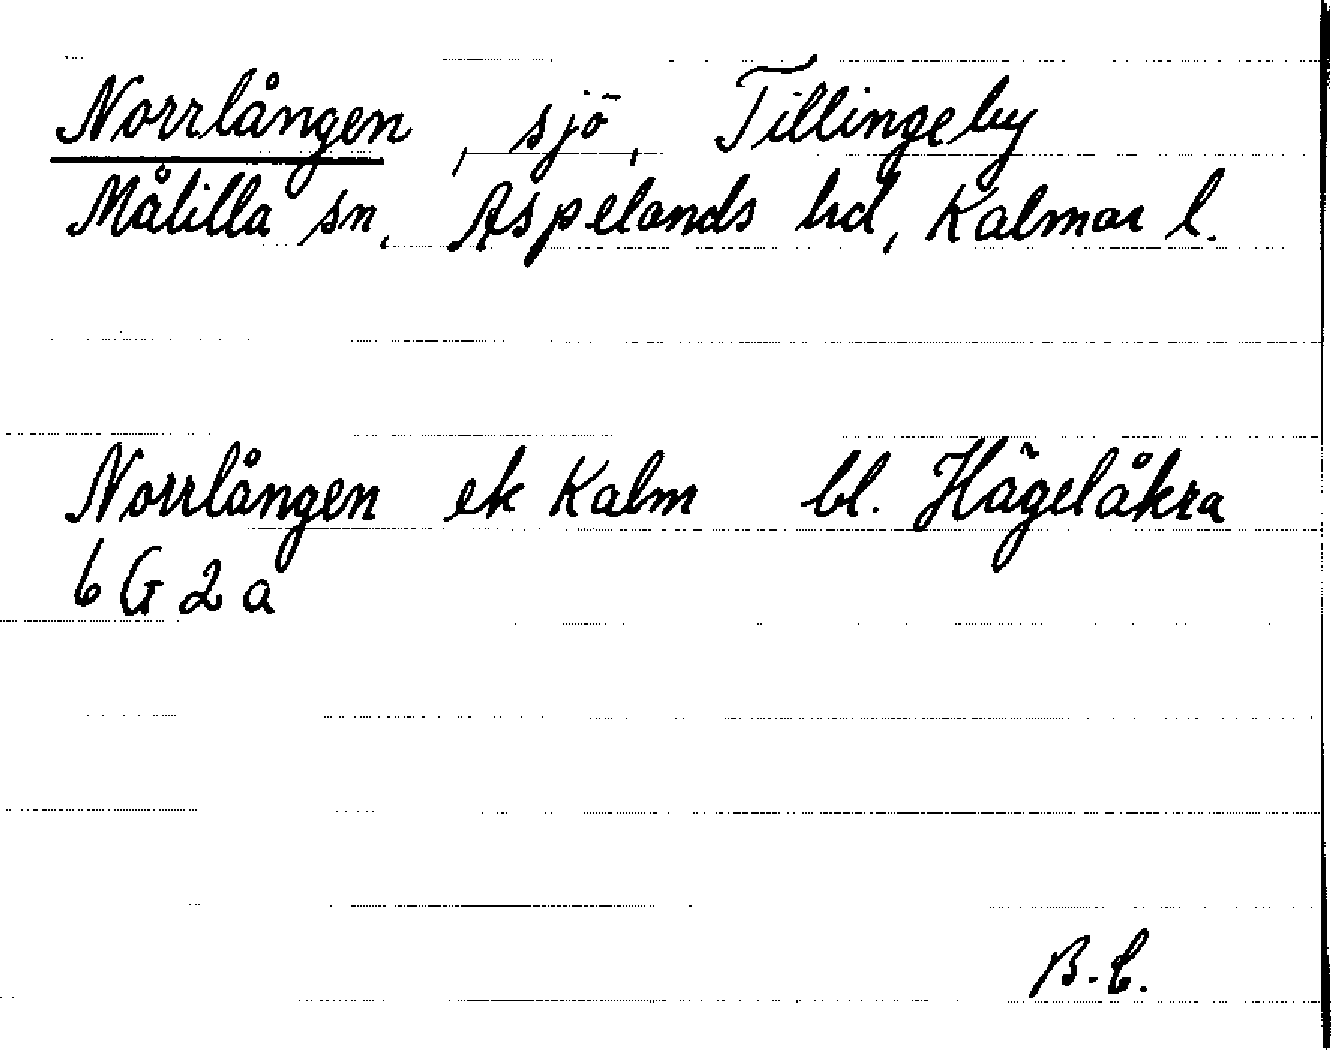 Norrlången, sjö, Tillingeby
Målilla sn, Aspelands hd, Kalmar l.
Norrlången ek Kalm bl. Hägelåkra
6 G 2 a
B.C.